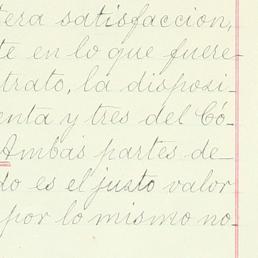 tera satisfaccion,
te en lo que fuere
trato, la disposi-
enta y tres del Có-
Ambas partes de-
do es el justo valor
por lo mismo no-